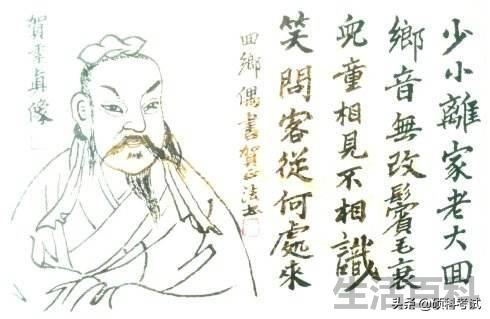 少小離家老大回
鄉音無改鬢毛衰
兒童相見不相識
笑問客從何處來
回鄉偶書賀
賀季真像
生活百科
头条 @硕科考试